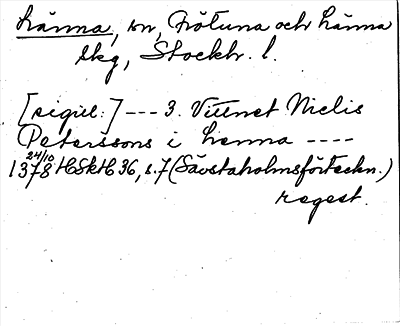 Länna, sn, Frötuna och Länna
skg, Stockh. l.
[sigill:] --- 3. Vittnet Niclis
Peterssons i Lenna ----
24/10
1378 HSkH 36, s. 7 (Sävstaholmsförteckn.)
regest.